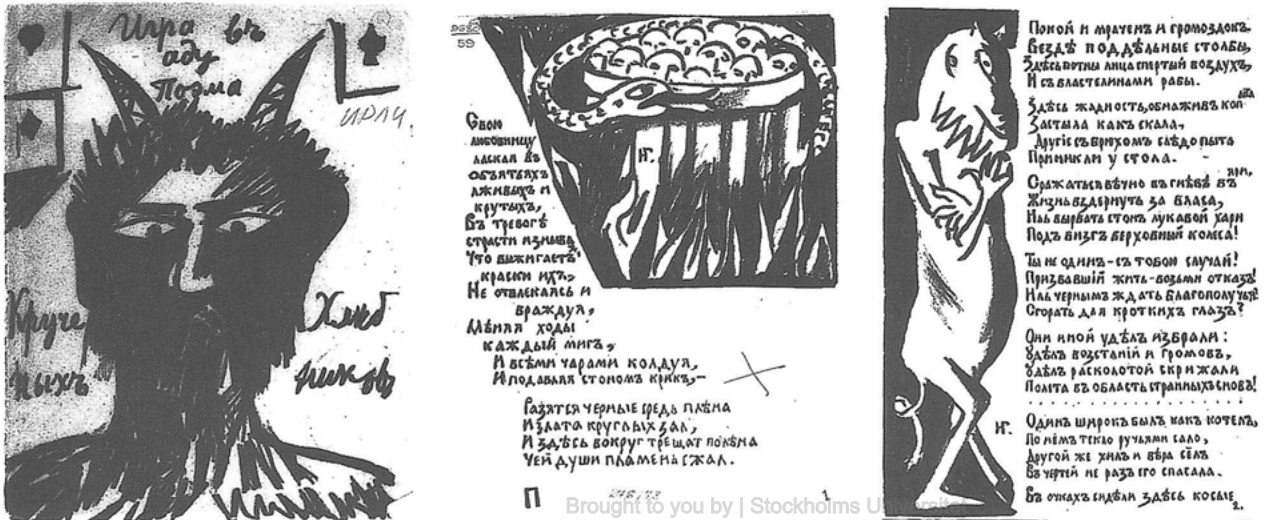 Игра въ
аду
Поэма
ИРЛИ
Круче
ныхъ
Хлѣб
никовъ
59
Свою
любовницу
лаская въ
объятьяхъ
лживыхъ и
крутыхъ,
Въ тревогѣ
страсти изнывая
Что выжигаетъ
краски ихъ,
Не отвлекаясь и
враждуя,
Мѣняя ходы
каждый мигъ,
И всѣми чарами колдуя,
И подавляя стономъ крикъ,–
Разятся черные средь плѣна
И злата круглыхъ зал,
И здѣсь вокруг трещат полѣна
Чей души пламень сжал.
НГ.
П
1
Brought to you by | Stockholms
Покой и мраченъ и громоздокъ,
Вездѣ поддѣльные столбы,
Здѣсь потны лица спертый воздухъ,
И съ властелинами рабы.
Здѣсь жадность, обнаживъ копыта
Застыла какъ скала,
Другіе съ брюхомъ слѣдопыта
Приникли у стола.
Сражаться вѣчно въ гнѣвѣ въ яри,
Жизнь вздернуть за власа,
Иль вырвать стонъ лукавой хари
Подъ визгъ верховный колеса!
Ты не одинъ-съ тобою случай!
Призвавшій жить-возьми отказъ!
Иль чернымъ ждать благополучья?
Сгорать для кроткихъ глазъ?
Они иной удѣлъ избрали:
Удѣлъ возстаній и громовъ,
Удѣлъ расколотой скрижали
Полета въ область странныхъ сновъ!
. . . . . . . . . . . . . . . . .
НГ.
Одинъ широкъ былъ какъ котелъ,
По нёмъ текло ручьями сало,
Другой же хилъ и вѣра сёлъ
Въ чертей не разъ его спасала.
Въ очкахъ сидѣли здѣсь косые
2.